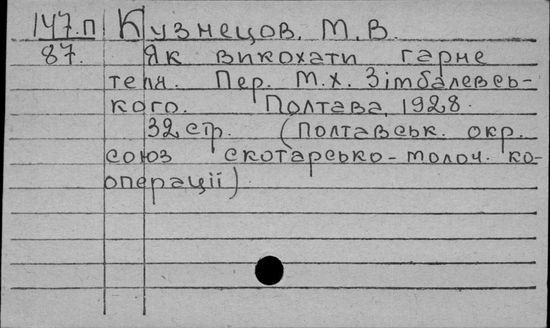 147.п Кузнецов, М. В.
87. Як викохати гарне
теля. Пер. М.Х. Зімбалевсь-
кого. Полтава, 1928.
32 стр. (Полтавськ. окр.
союз скотарсько-молоч. ко-
операції)